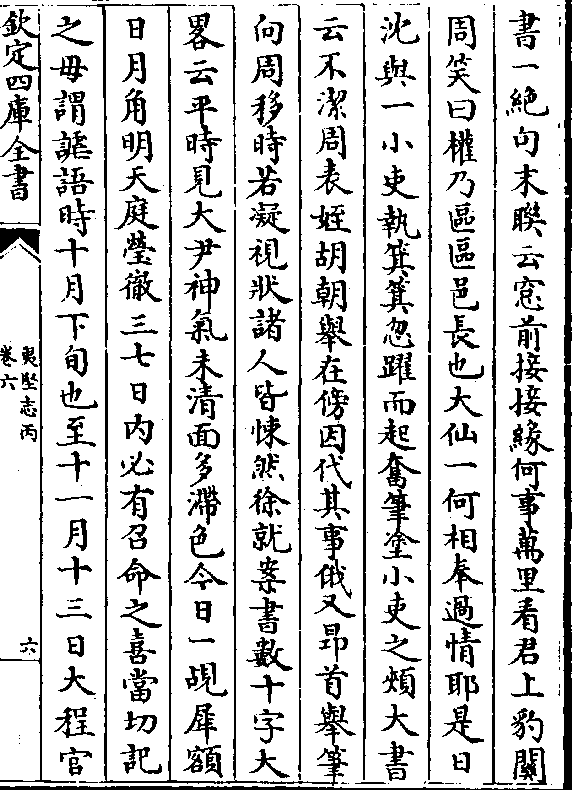 書一絶句末聨云窓前接接緣何事萬里看君上豹關
周笑曰權乃區區邑長也大仙一何相奉過情耶是日
沈與一小吏執箕箕忽躍而起奮筆塗小吏之頰大書
云不潔周表姪胡朝舉在傍因代其事俄又昂首舉筆
向周移時若凝視狀諸人皆悚然徐就案書數十字大
畧云平時見大尹神氣未清面多滯色今日一覘犀額
日月角明天庭瑩徹三七日内必有召命之喜當切記
之毋謂謔語時十月下旬也至十一月十三日大程官
欽定四庫全書
夷堅志丙
卷六
六